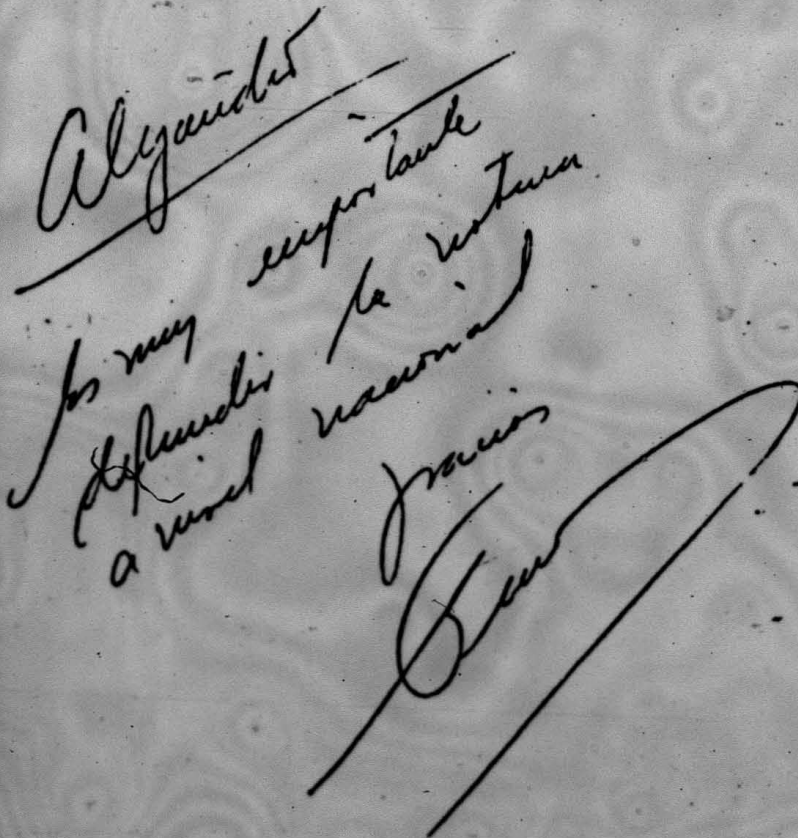 Alejandro
Es muy importante
defender la
a nivel nacional
gracias